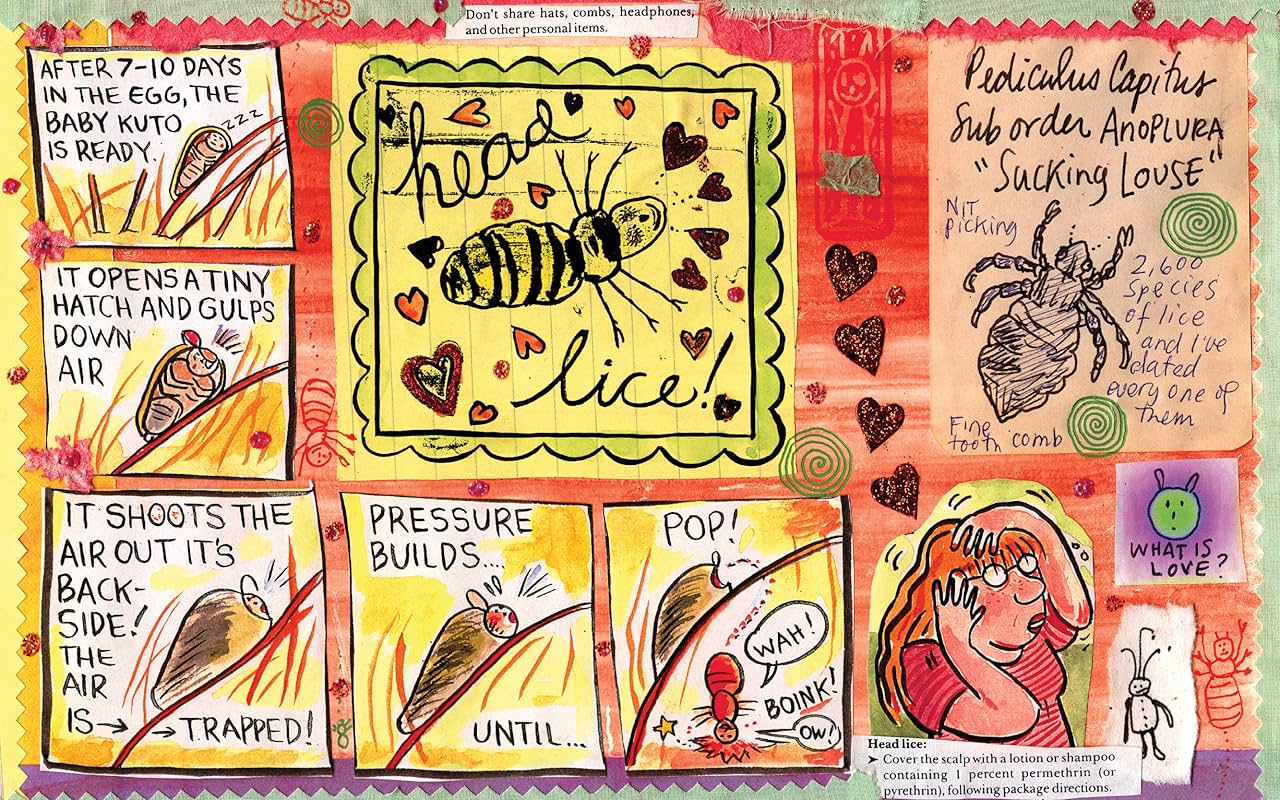 Don't share hats, combs, headphones,
and other personal items.
AFTER 7-10 DAYS
IN THE EGG, THE
BABY KUTO
IS READY.
ZZZ
IT OPENS A TINY
HATCH AND GULPS
DOWN
AIR
head
lice!
Pediculus Capitus
Sub order ANOPLURA
"Sucking LOUSE"
NIT
picking
2,600
species
of lice
and I've
dated
every one of
them
Fine
tooth comb
IT SHOOTS THE
AIR OUT IT'S
BACK-
SIDE!
THE
AIR
IS→ →TRAPPED!
PRESSURE
BUILDS....
UNTIL...
POP!
WAH!
BOINK!
OW!
WHAT IS
LOVE?
Head lice:
➤ Cover the scalp with a lotion or shampoo
containing 1 percent permethrin (or
pyrethrin), following package directions.